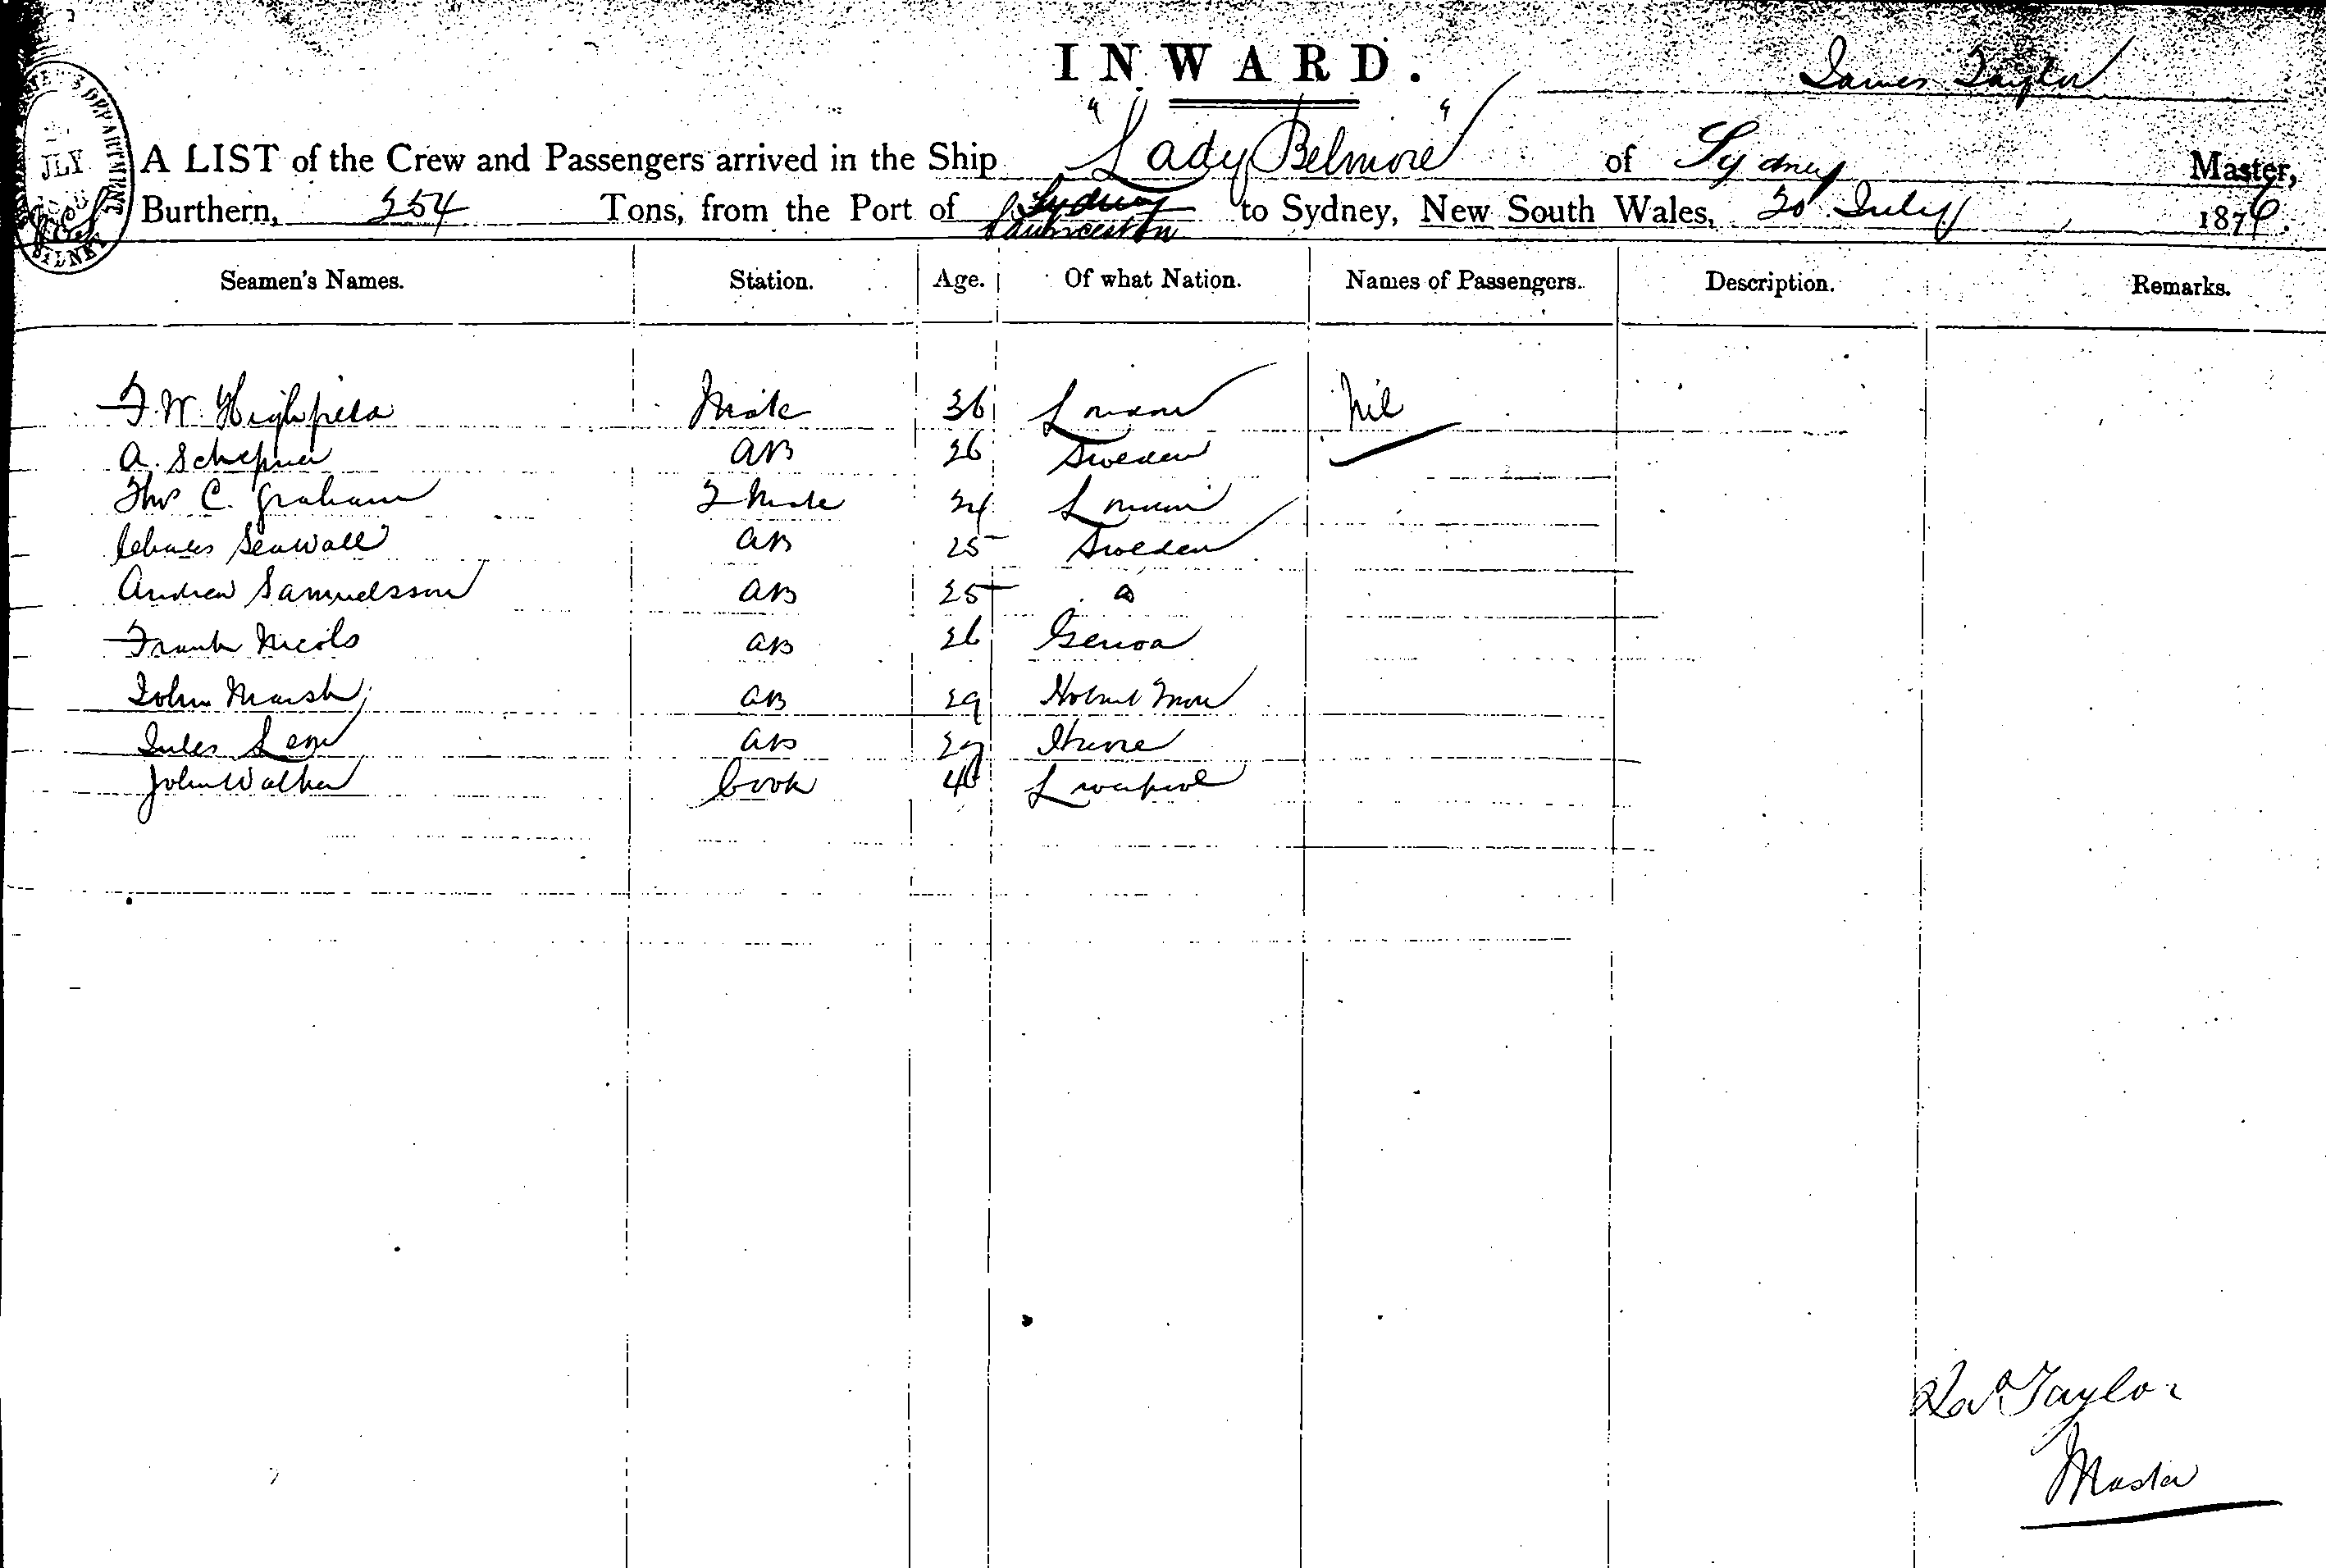 INWARD.
James Taylor
A LIST of the Crew and Passengers arrived in the Ship "Lady Belmore" of Sydney Master,
Burthern, 254 Tons, from the Port of Sydney Launceston to Sydney, New South Wales, 20 July 1876.
JLY
Seamen's Names. Station. Age. Of what Nation. Names of Passengers. Description. Remarks.
F. W. Highfield Mate 36 London Nil
A. Schepner AB 26 Sweden
Thos C. Graham 2 Mate 24 London
Charles Seawall AB 25 Sweden
Andrew Samuelsson AB 25
Frank Nicols AB 26 Genoa
John Marsh AB 29 Hobart Town
Jules AB 27 Havre
John Walker Cook 40 Liverpool
Jas Taylor
Master